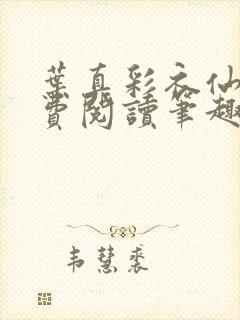 葉真彩衣仙
費閱讀筆趣
韦慧裘